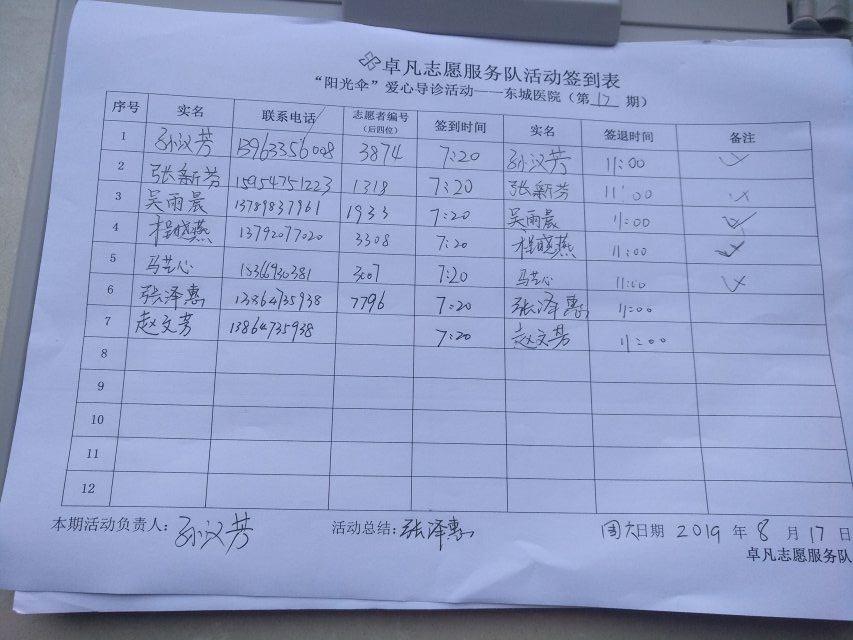 卓凡志愿服务队活动签到表
“阳光伞”爱心导诊活动——东城医院（第17期）
序号 实名 联系电话 志愿者编号（后四位） 签到时间 实名 签退时间 备注
1 孙汉芳 15963356048 3874 7:20 孙汉芳 11:00 ✓
2 张新芳 15954751223 1318 7:20 张新芳 11:00 ✓
3 吴雨晨 13789837961 1933 7:20 吴雨晨 11:00 ✓
4 程晓燕 13792077020 3308 7:20 程晓燕 11:00 ✓
5 马艺心 15366930381 3007 7:20 马艺心 11:00 ✓
6 张泽惠 13864735938 7796 7:20 张泽惠 11:00
7 赵文芳 13864735938 7:20 赵文芳 11:00
8
9
10
11
12
本期活动负责人：孙汉芳 活动总结：张泽惠 周六日期 2019 年 8 月 17 日
卓凡志愿服务队